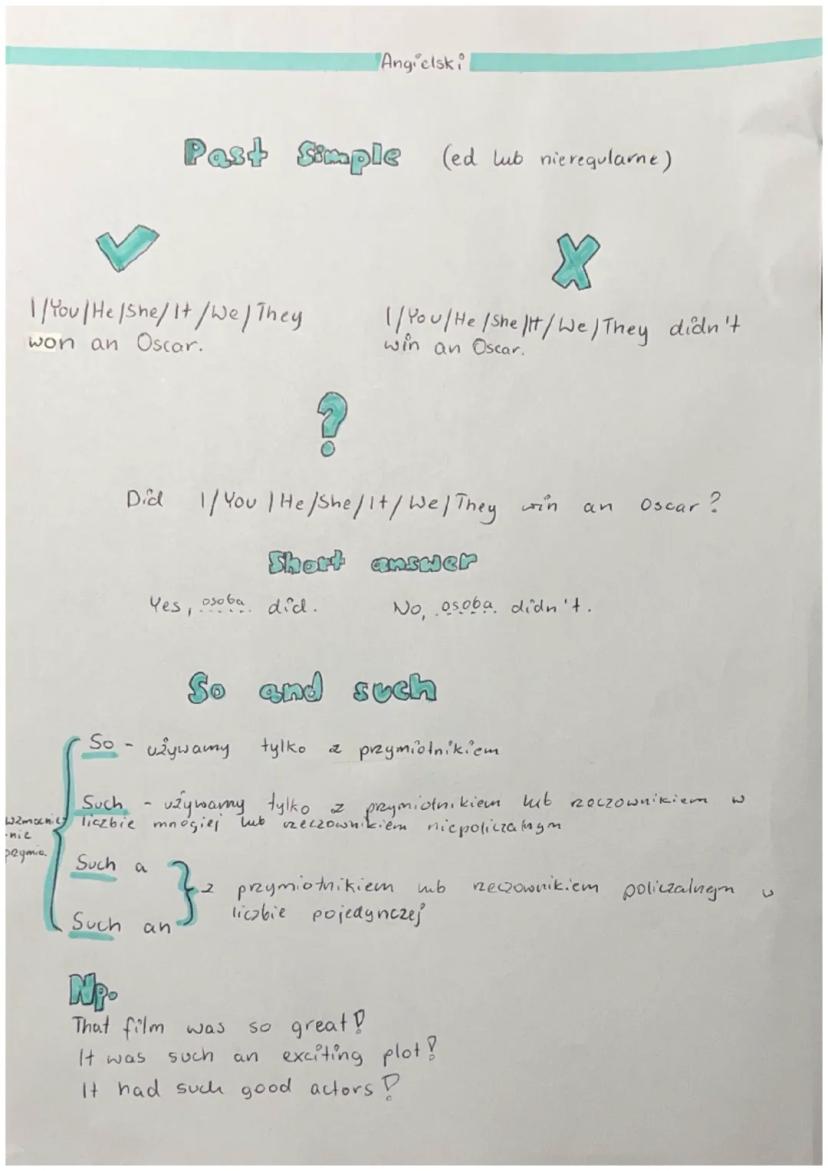 Angielski
Past Simple (ed lub nieregularne)
I/You/He/She/It/We/They
won an Oscar.
I/You/He/She/It/We/They didn't
win an Oscar.
?
Did I/You/He/She/It/We/They win an Oscar?
Short answer
Yes, osoba did. No, osoba didn't.
So and such
So - używamy tylko z przymiotnikiem
Such - używamy tylko z przymiotnikiem lub rzeczownikiem w
liczbie mnogiej lub rzeczownikiem niepoliczalnym
Such a
Such an
z przymiotnikiem lub rzeczownikiem policzalnym w
liczbie pojedynczej
Np.
That film was so great!
It was such an exciting plot!
It had such good actors!